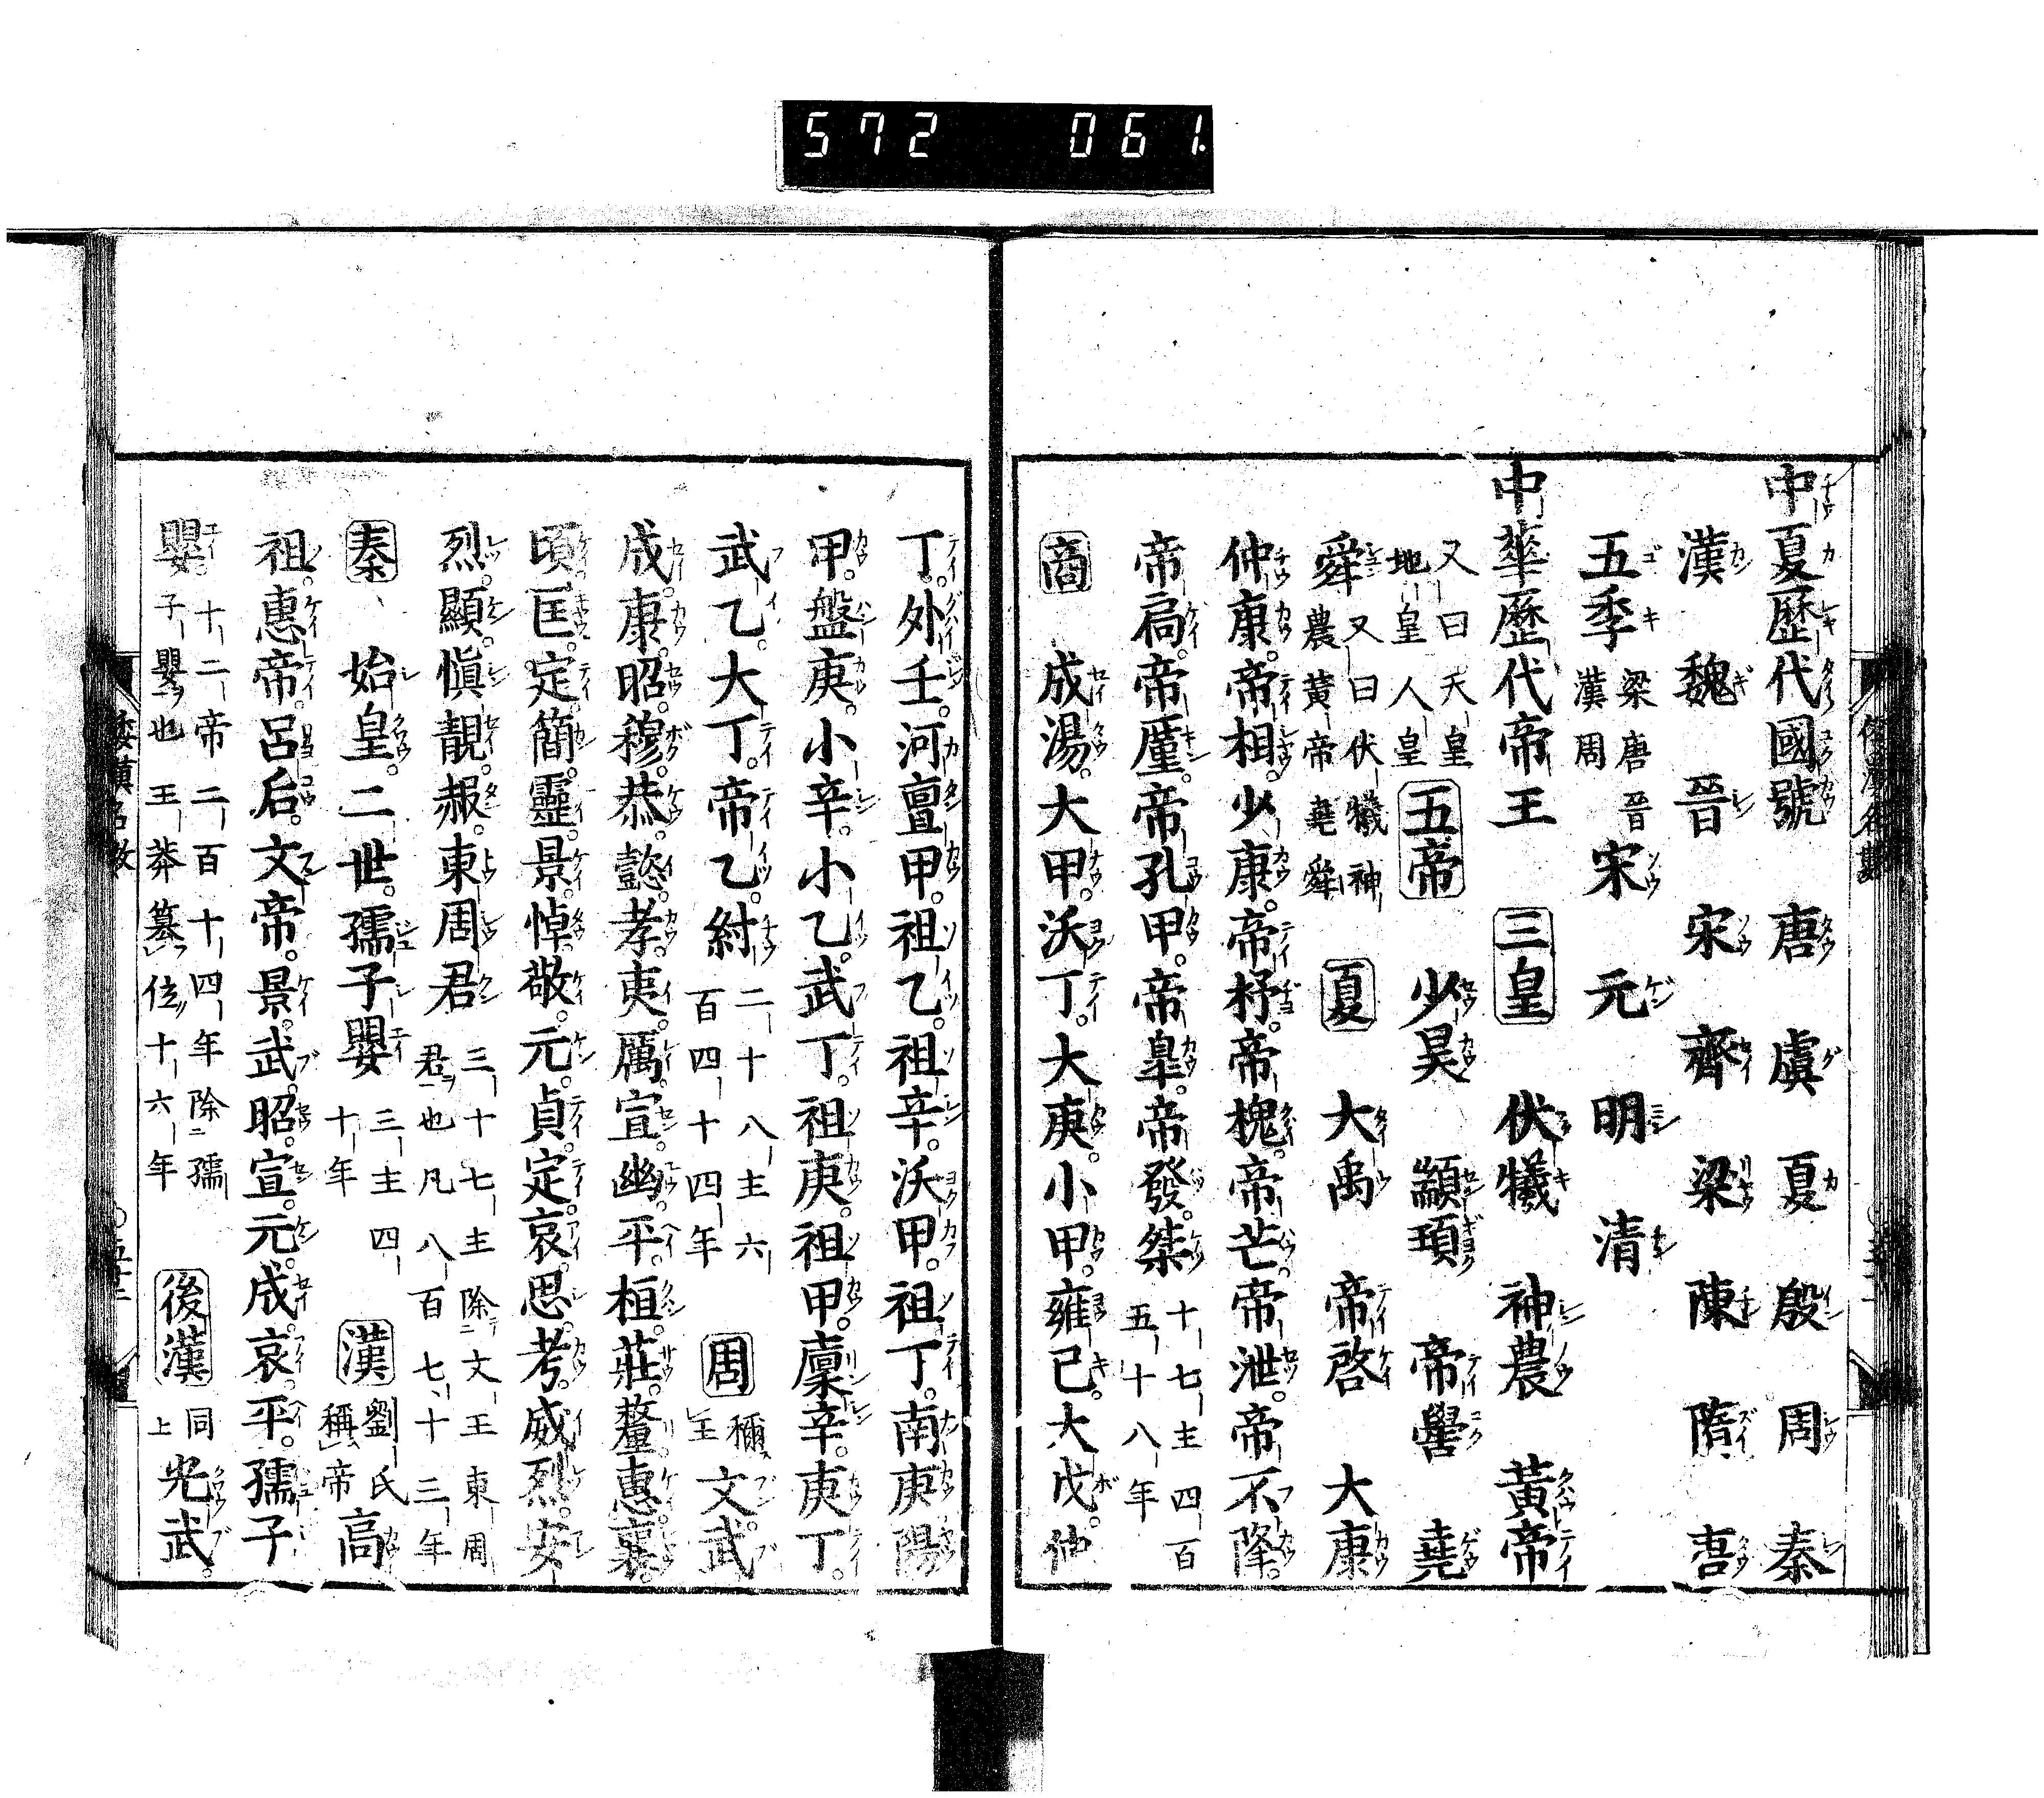 572 061
中夏歷代國號 唐 虞 夏 殷 周 秦
漢 魏 晉 宋 齊 梁 陳 隋
五季 梁唐晉漢周 宋 元 明 清
中華歷代帝王 三皇 伏犧 神農 黃帝
又曰天皇地皇人皇 五帝 少昊 顓頊 帝嚳 堯
舜 又曰伏犧神農黃帝堯舜 夏 大禹 帝啓 大康
仲康。帝相。少康。帝杼。帝槐。帝芒。帝泄。帝不降。
帝扃。帝厪。帝孔甲。帝皐。帝發。桀 十七主四百五十八年
商 成湯。大甲。沃丁。大庚。小甲。雍己。大戊。仲
丁。外壬。河亶甲。祖乙。祖辛。沃甲。祖丁。南庚。陽
甲。盤庚。小辛。小乙。武丁。祖庚。祖甲。廩辛。庚丁。
武乙。大丁。帝乙。紂 二十八主六百四十四年 周 稱王 文。武。
成。康。昭。穆。恭。懿。孝。夷。厲。宣。幽。平。桓。莊。釐。惠。襄。
頃。匡。定。簡。靈。景。悼。敬。元。貞定。哀。思。考。威烈。安。
烈。顯。愼靚。赧。東周君 三十七主除文王東周君也凡八百七十三年
秦 始皇。二世。孺子嬰 三主四十年 漢 劉氏稱帝 高
祖。惠帝。呂后。文帝。景。武。昭。宣。元。成。哀。平。孺子
嬰。十二帝二百十四年除孺子嬰也王莽簒位十六年 後漢 同上 光武。